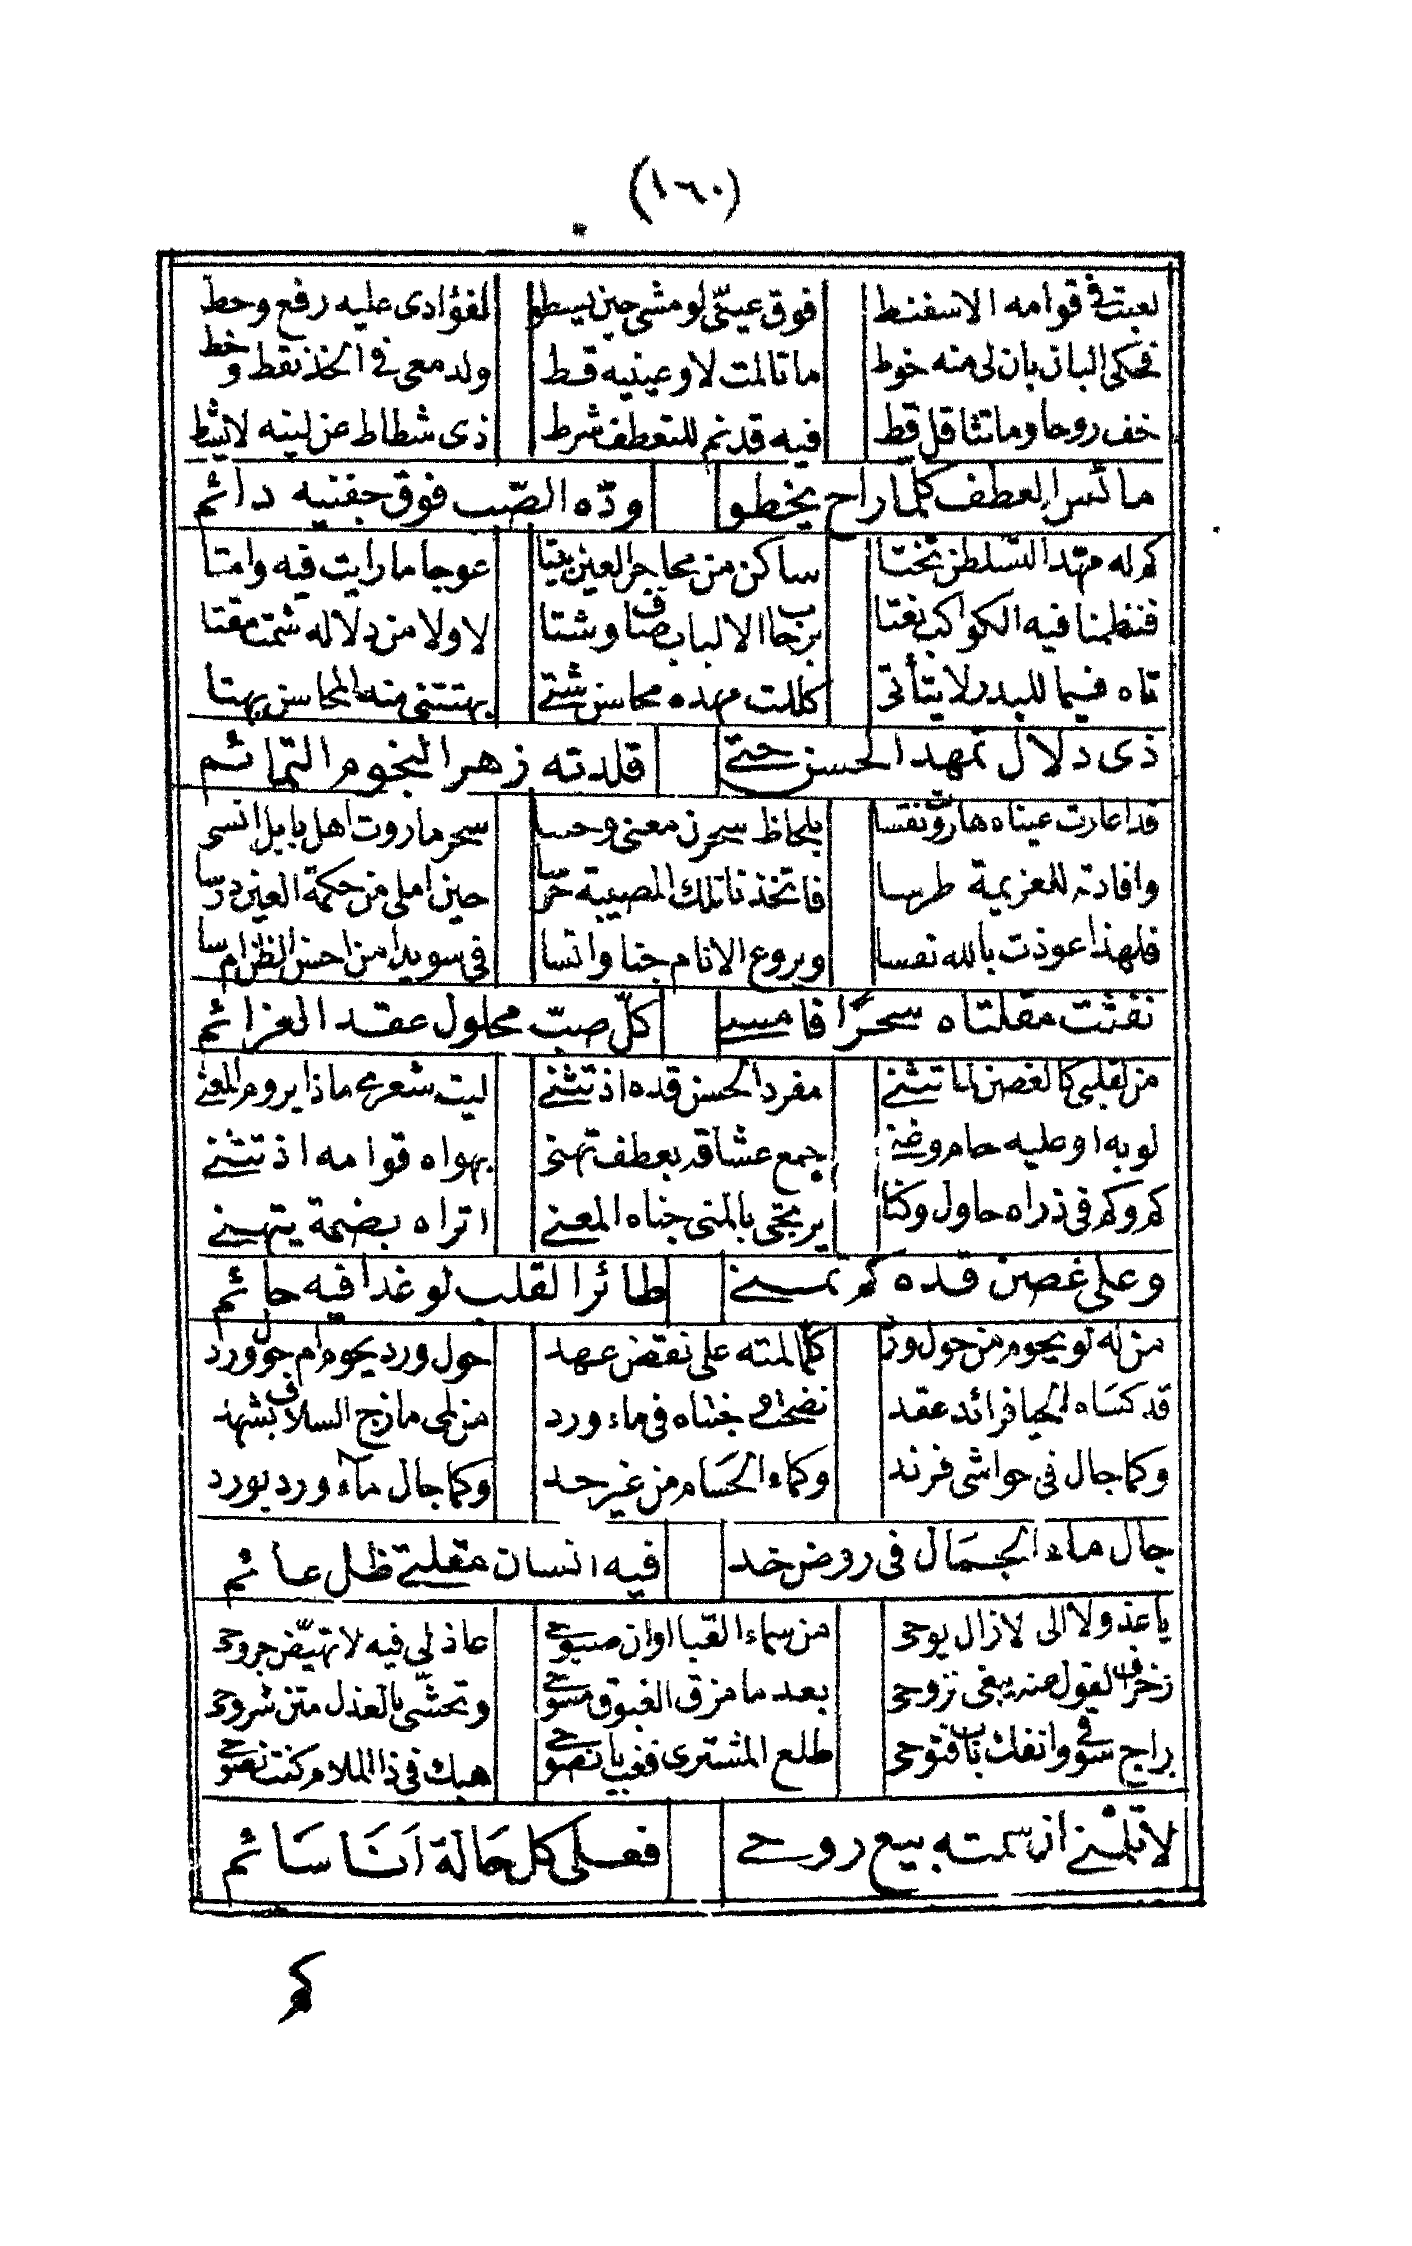 (١٦٠)
لعبت في قوامه الاسفنط فوق عيني لو مشى حين يسطو لفؤادى عليه رفع وحط
فحكى البان بان لى منه خوط ما تالمت لا وعينيه قط ولد معى في الخذ نقط وخط
خف روحا وما تثاقل قط فيه قد نم للتعطف شرط ذى شطاط عن لينه لا يشط
مائس العطف كلما راح يخطو ودّه الصّب فوق جفنيه دائم
كم له مهّد السّلطن تختا ساكن من محاجر العين بيتا عوجا ما رايت فيه وامتا
فنظمنا فيه الكواكب نعتا برحاب الالباب صاف وشتا لا ولا من دلاله شمت مقتا
تاه فيما للبدر لا يتأتى كللت مهده محاسن شتى بهتتنى منه المحاسن بهتا
ذى دلال تمهد الحسن حتى قلدته زهر النجوم التمائم
قد اعارت عيناه هاروت نفسا بلحاظ سحرن معنى وحسا سحر ماروت اهل بابل انسى
وافادته للعزيمة طرسا فاتخذنا تلك المصيبة حرسا حين املى من حكمة العين درسا
فلهذا عوذت بالله نفسا ويروع الانام جنا وانسا في سويدا من احسن الظن ام سا
نفثت مقلتاه سحرًا فامسى كلّ صبّ محلول عقد العزائم
من لقلبى كالغصن لما تثنى مفرد الحسن قده اذ تثنى ليت شعرى ماذا يروم المعنى
لو به او عليه حام وغنى جمع عشاقه بعطف تهنى بهواه قوامه اذ تثنى
كم وكم في ذراه حاول وكنا يرتجى بالمنى جناه المعنى اتراه بضمة يتهنى
وعلى غصن قده كم تمنى طائر القلب لو غدا فيه حائم
من له لو يحوم من حول ورد كلّما لمته على نقض عهد حول ورد يحوم ام حول ورد
قد كساه الحيا فرائد عقد نضحت وجنتاه في ماء ورد من لمى مازج السلاف بشهد
وكما جال في حواشى فرند وكماء الحسام من غير حد وكما جال ماء ورد بورد
جال ماء الجمال في روض خد فيه انسان مقلتى ظل عائم
يا عذولا الى لازال يوحى من سماء القبا اوان صبوحى عاذلى فيه لا تهيّض جروحى
زخرف القول منه يبغى نزوحى بعد ما مزق الغبوق مسوحى وتحشّى بالعذل متن شروحى
راح في سوء وانفك باب فتوحى طلع المشترى فغب يا نصوحى هبك في ذا الملام كنت نصوحى
لا تلمنى ان سمته بيع روحى فعلى كل حَالة انَا سَائم
كم